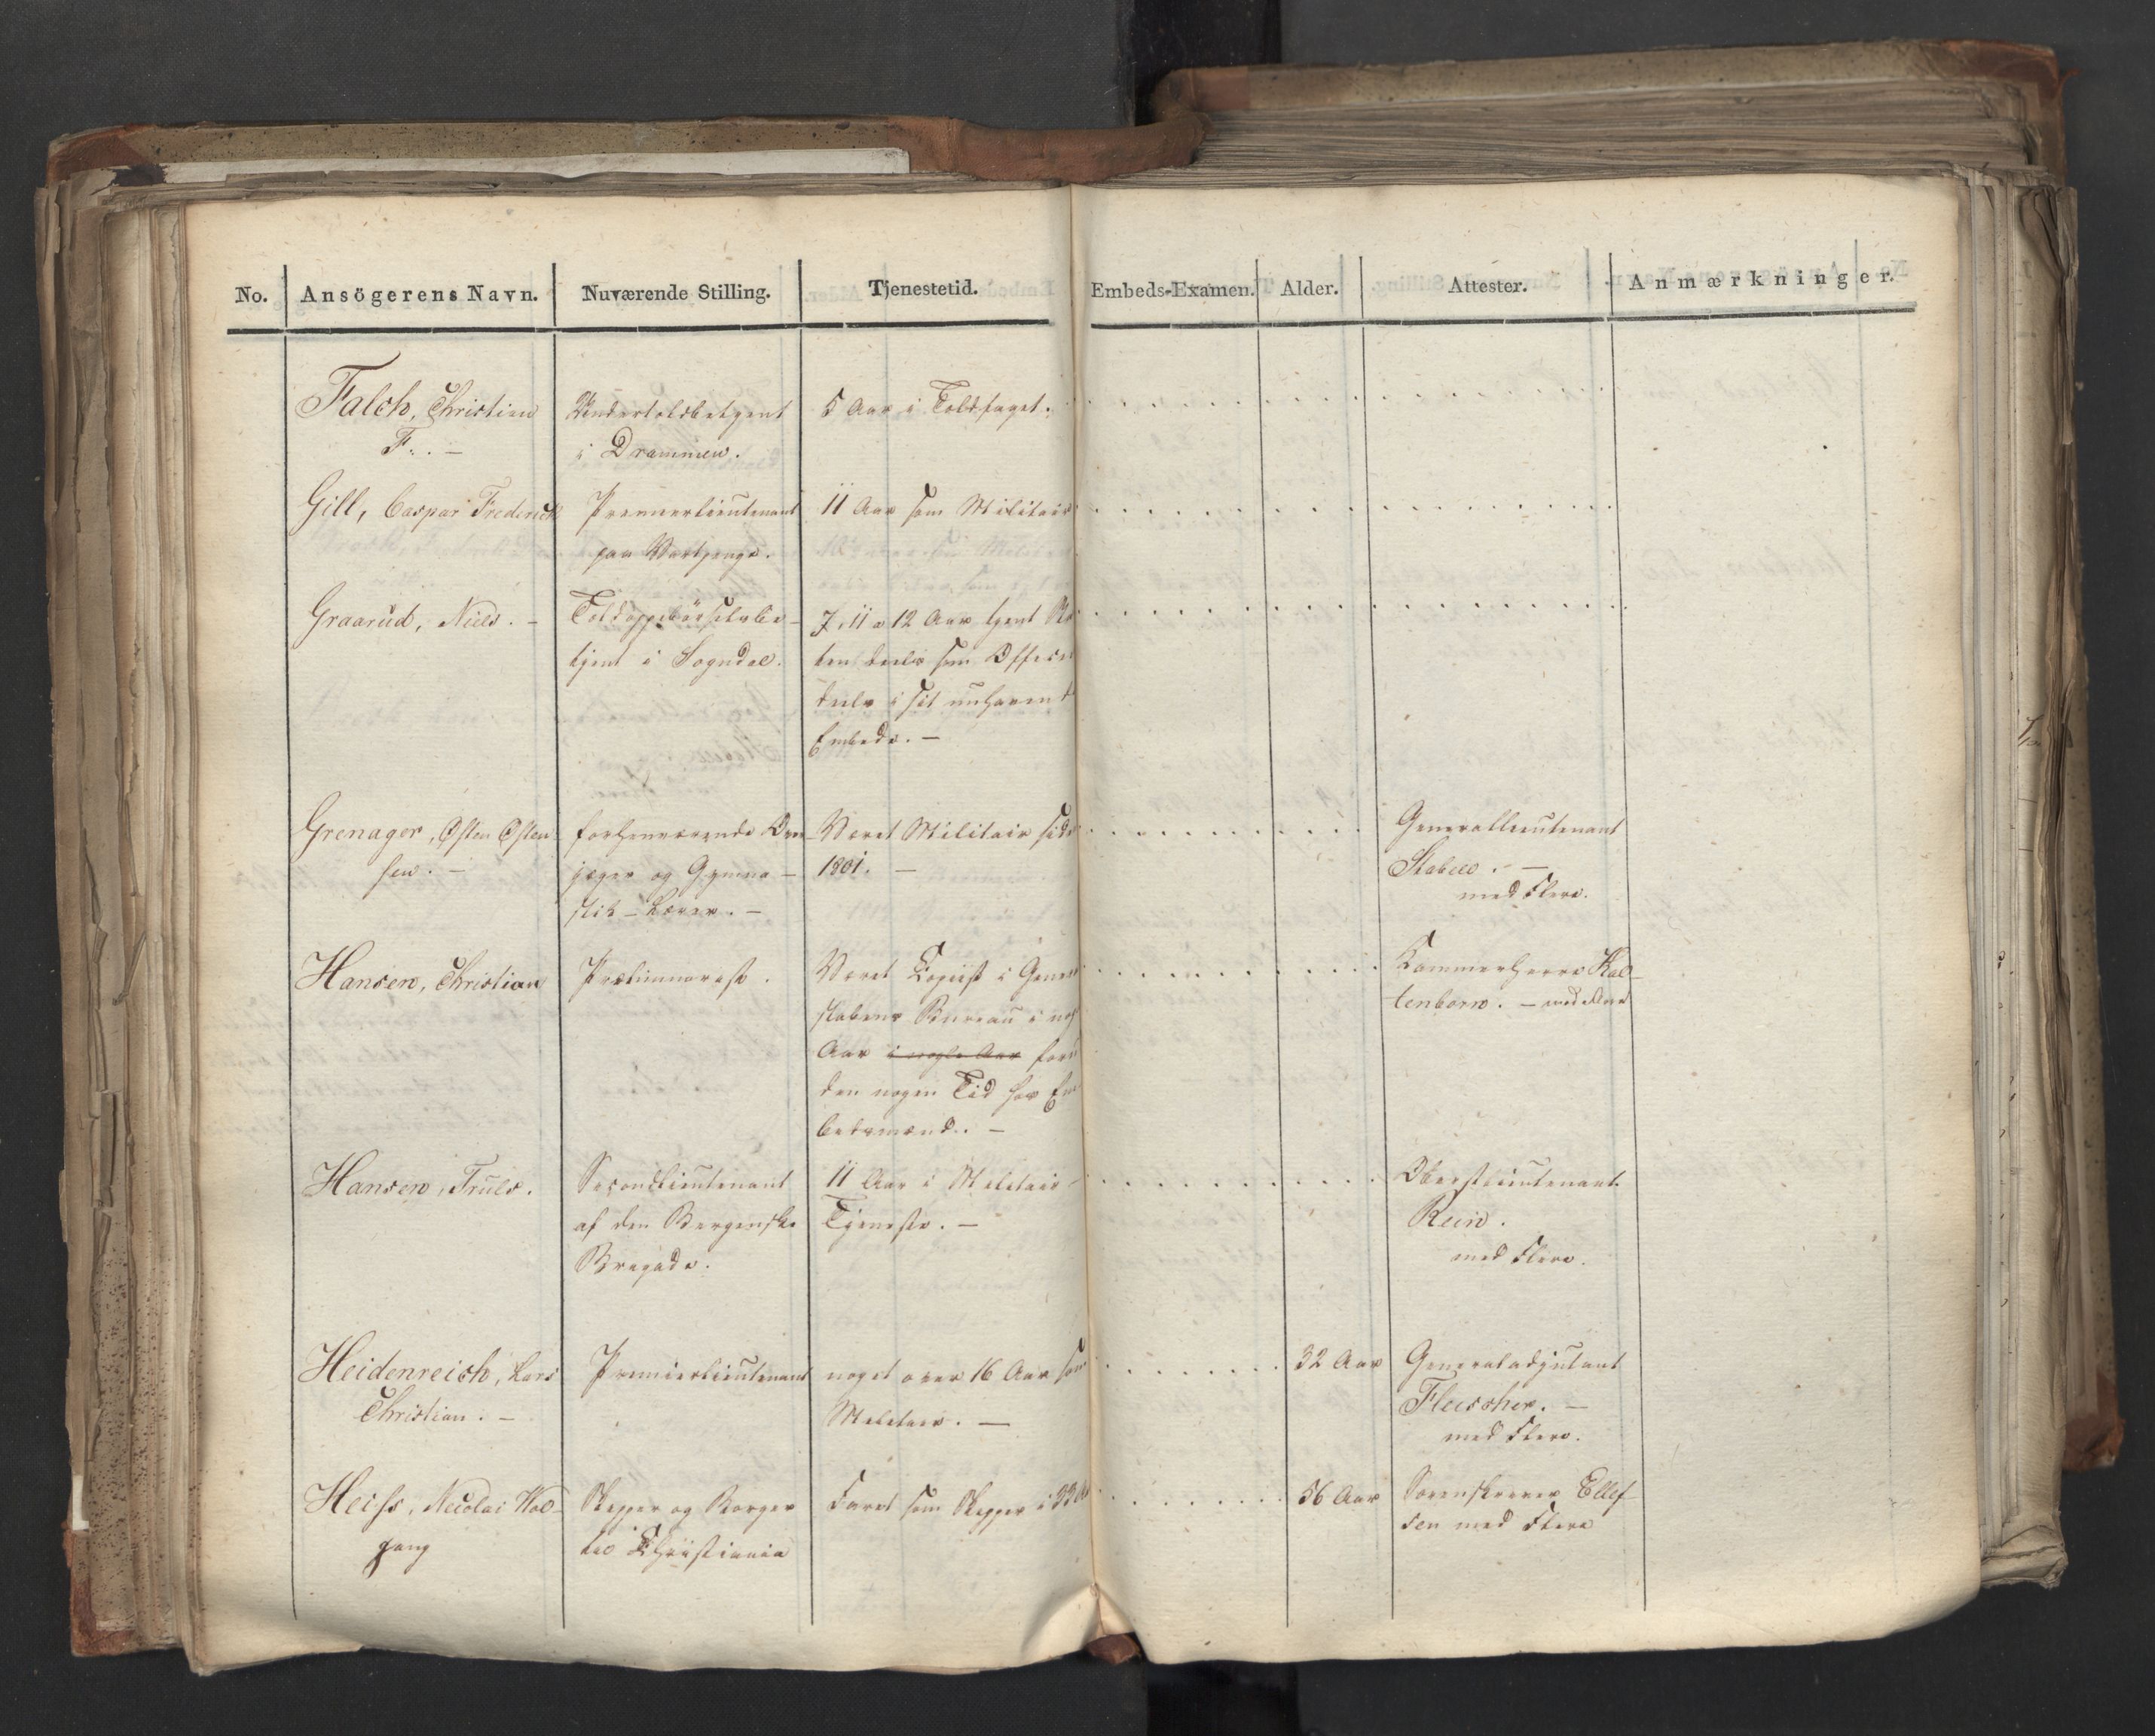 No. Ansögerens Navn. Nuværende Stilling. Tjenestetid. Embeds-Examen. Alder. Attester. Anmærkninger.
Falch, Christian
F. . —
Undertoldbetjent
i Drammen.
5 Aar i Toldfaget.
Gill, Caspar Frederick
Premierlieutenant
paa Vartpenge.
11 Aar som Militair
Graarud, Niels. —
Toldoppebörselsbe-
tjent i Sogndal.
7, 11 a 12 Aar tjent
ten deels som
deels i sit nuhavend
Embede. —
Grenager, Osten Osten
sen. —
forhenværende
jæger og Gymna-
stik-Lærer. —
Været Militair side
1801. —
Generallieutenant
Stabell. —
med Flere.
Hansen, Christian
Præliminarist.
Været Copiist i Gene
stabens Bureau i
Aar i nogle Aar foru
den nogen Tid hos Em
bedsmænd. —
Kammerherre Kal-
tenborn. — med Flere
Hansen, Truls.
Secondlieutenant
af den Bergenske
Brigade.
11 Aar i Militair-
Tjeneste. —
Oberstlieutenant
Rein.
med Flere.
Heidenreich, Lars
Christian. —
Premierlieutenant
noget over 16 Aar som
Militair. —
32 Aar
Generaladjutant
Fleischer. —
med Flere.
Heiss, Nicolai Wol-
gang
Skipper og Borger
til Christiania
Faret som Skipper i 33 Aar
56 Aar
Sorenskriver Ellef-
sen med Flere